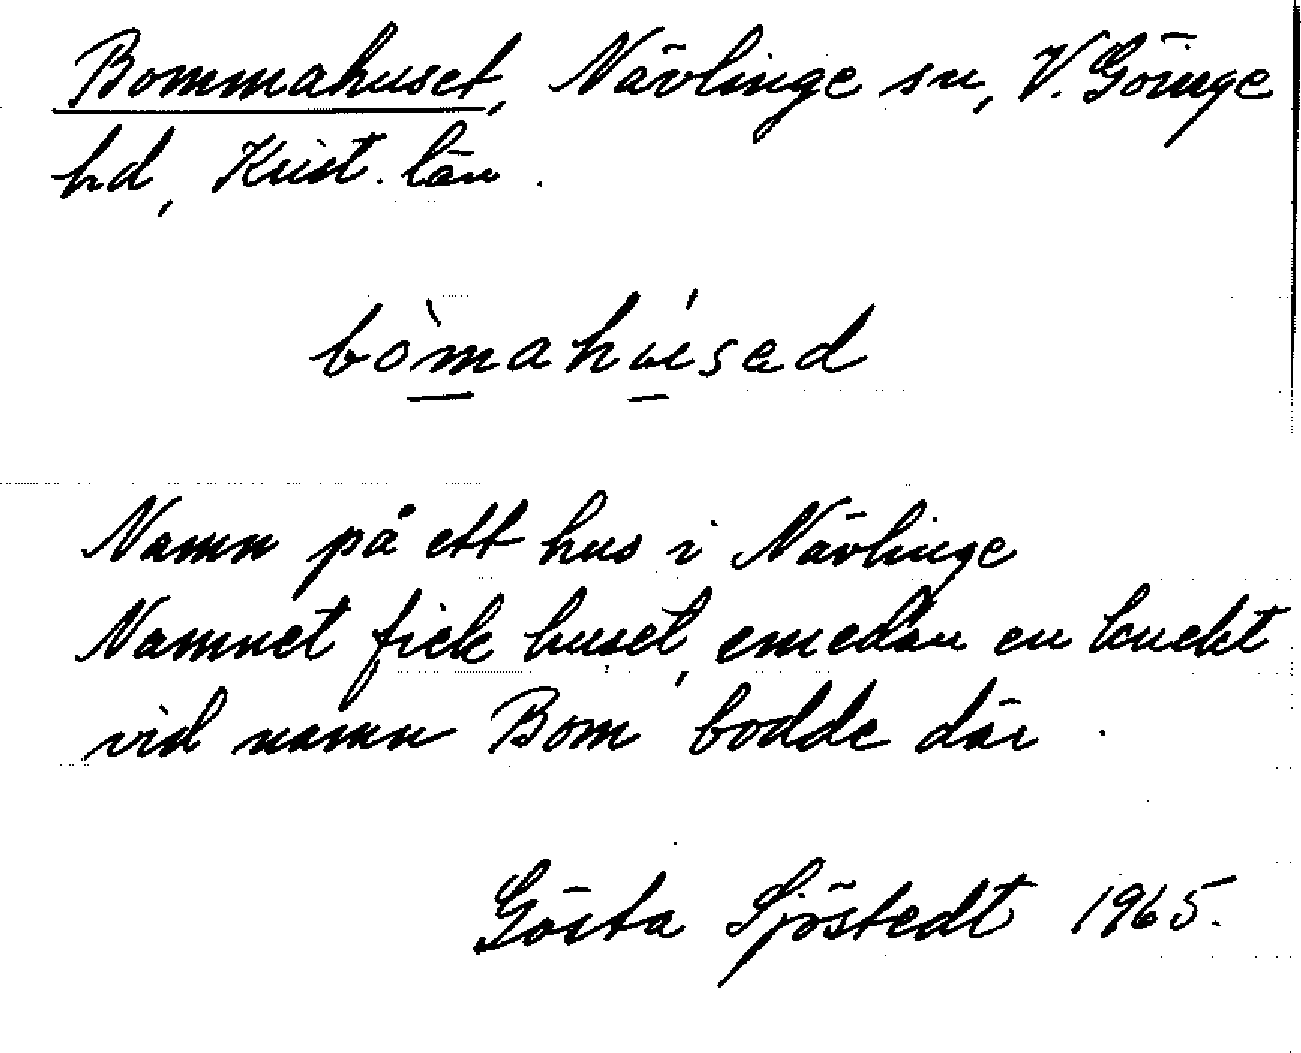 Bommahuset, Nävlinge sn, V. Göinge
hd, Krist. län.
bòmahúsad
Namn på ett hus i Nävlinge
Namnet fick huset, emedan en knekt
vid namn Bom bodde där.
Gösta Sjöstedt 1965.